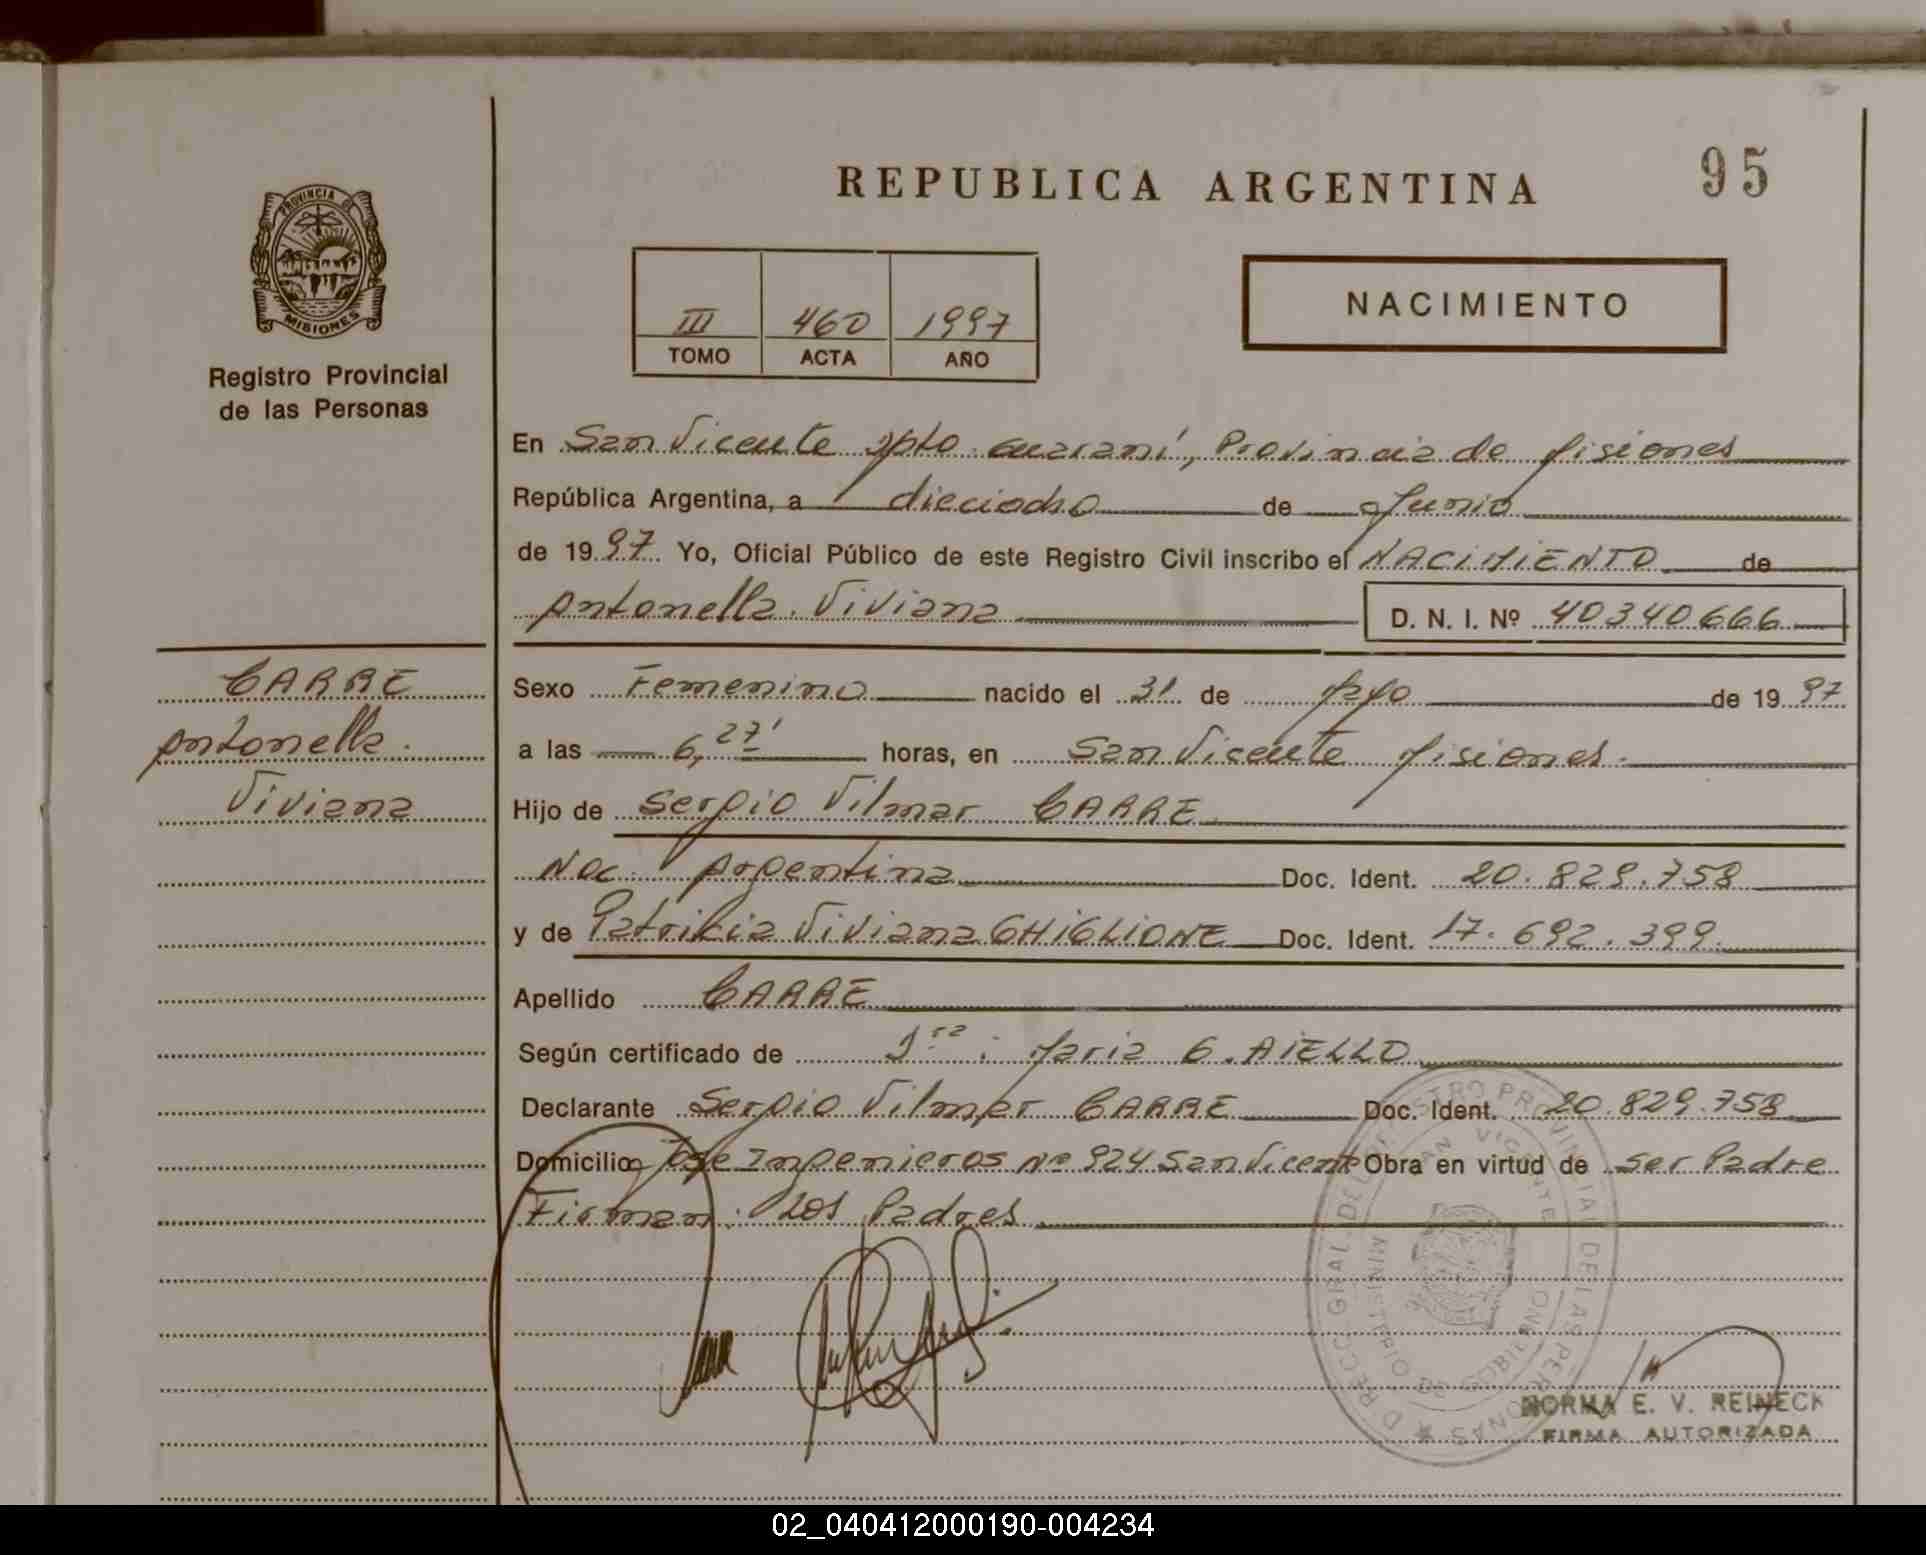 REPUBLICA ARGENTINA
95
PROVINCIA DE
MISIONES
Registro Provincial
de las Personas
III 460 1997
TOMO ACTA AÑO
NACIMIENTO
En San Vicente Dpto Guaraní, Provincia de Misiones
República Argentina, a dieciocho de Junio
de 1997 Yo, Oficial Público de este Registro Civil inscribo el NACIMIENTO de
Antonella Viviana D. N. I. Nº 40340666
CARRE
Antonella
Viviana
Sexo Femenino nacido el 31 de Mayo de 1997
a las 6,27' horas, en San Vicente Misiones.
Hijo de Sergio Vilmar CARRE
Nac. Argentina Doc. Ident. 20.829.758
y de Patricia Viviana GHIGLIONE Doc. Ident. 17.692.399
Apellido CARRE
Según certificado de Dra: Maria G. AIELLO
Declarante Sergio Vilmar CARRE Doc. Ident. 20.829.758
Domicilio Jose Ingenieros Nº 924 San Vicente Obra en virtud de ser Padre
Firman: Los Padres
NORMA E. V. REINECK
FIRMA AUTORIZADA
02_040412000190-004234